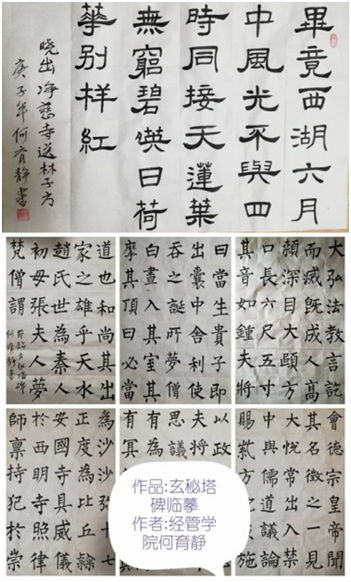 畢竟西湖六月
中風光不與四
時同接天蓮葉
無窮碧映日荷
華别样紅
晓出净慈寺送林子方
庚子年何育静書
大弘法教言訖
而滅既成人高
顙深目大頤方
口長六尺五寸
其音如鍾夫將
曰當生貴子即
出囊中舍利使
吞之誕所夢僧
白晝入其室其
摩其頂曰必當
道也和尚其出
家之雄乎天水
趙氏世為秦人
初母張夫人夢
梵僧謂
會德宗皇帝聞
其名徵之一見
大悦常出入禁
中與儒道議論
賜紫方施
以政
夫將
思議
有為
有冥
為比丘隸
安國寺具威儀
於西明寺照律
師禀持犯於崇
作品:玄秘塔
碑临摹
作者:经管学
院何育静